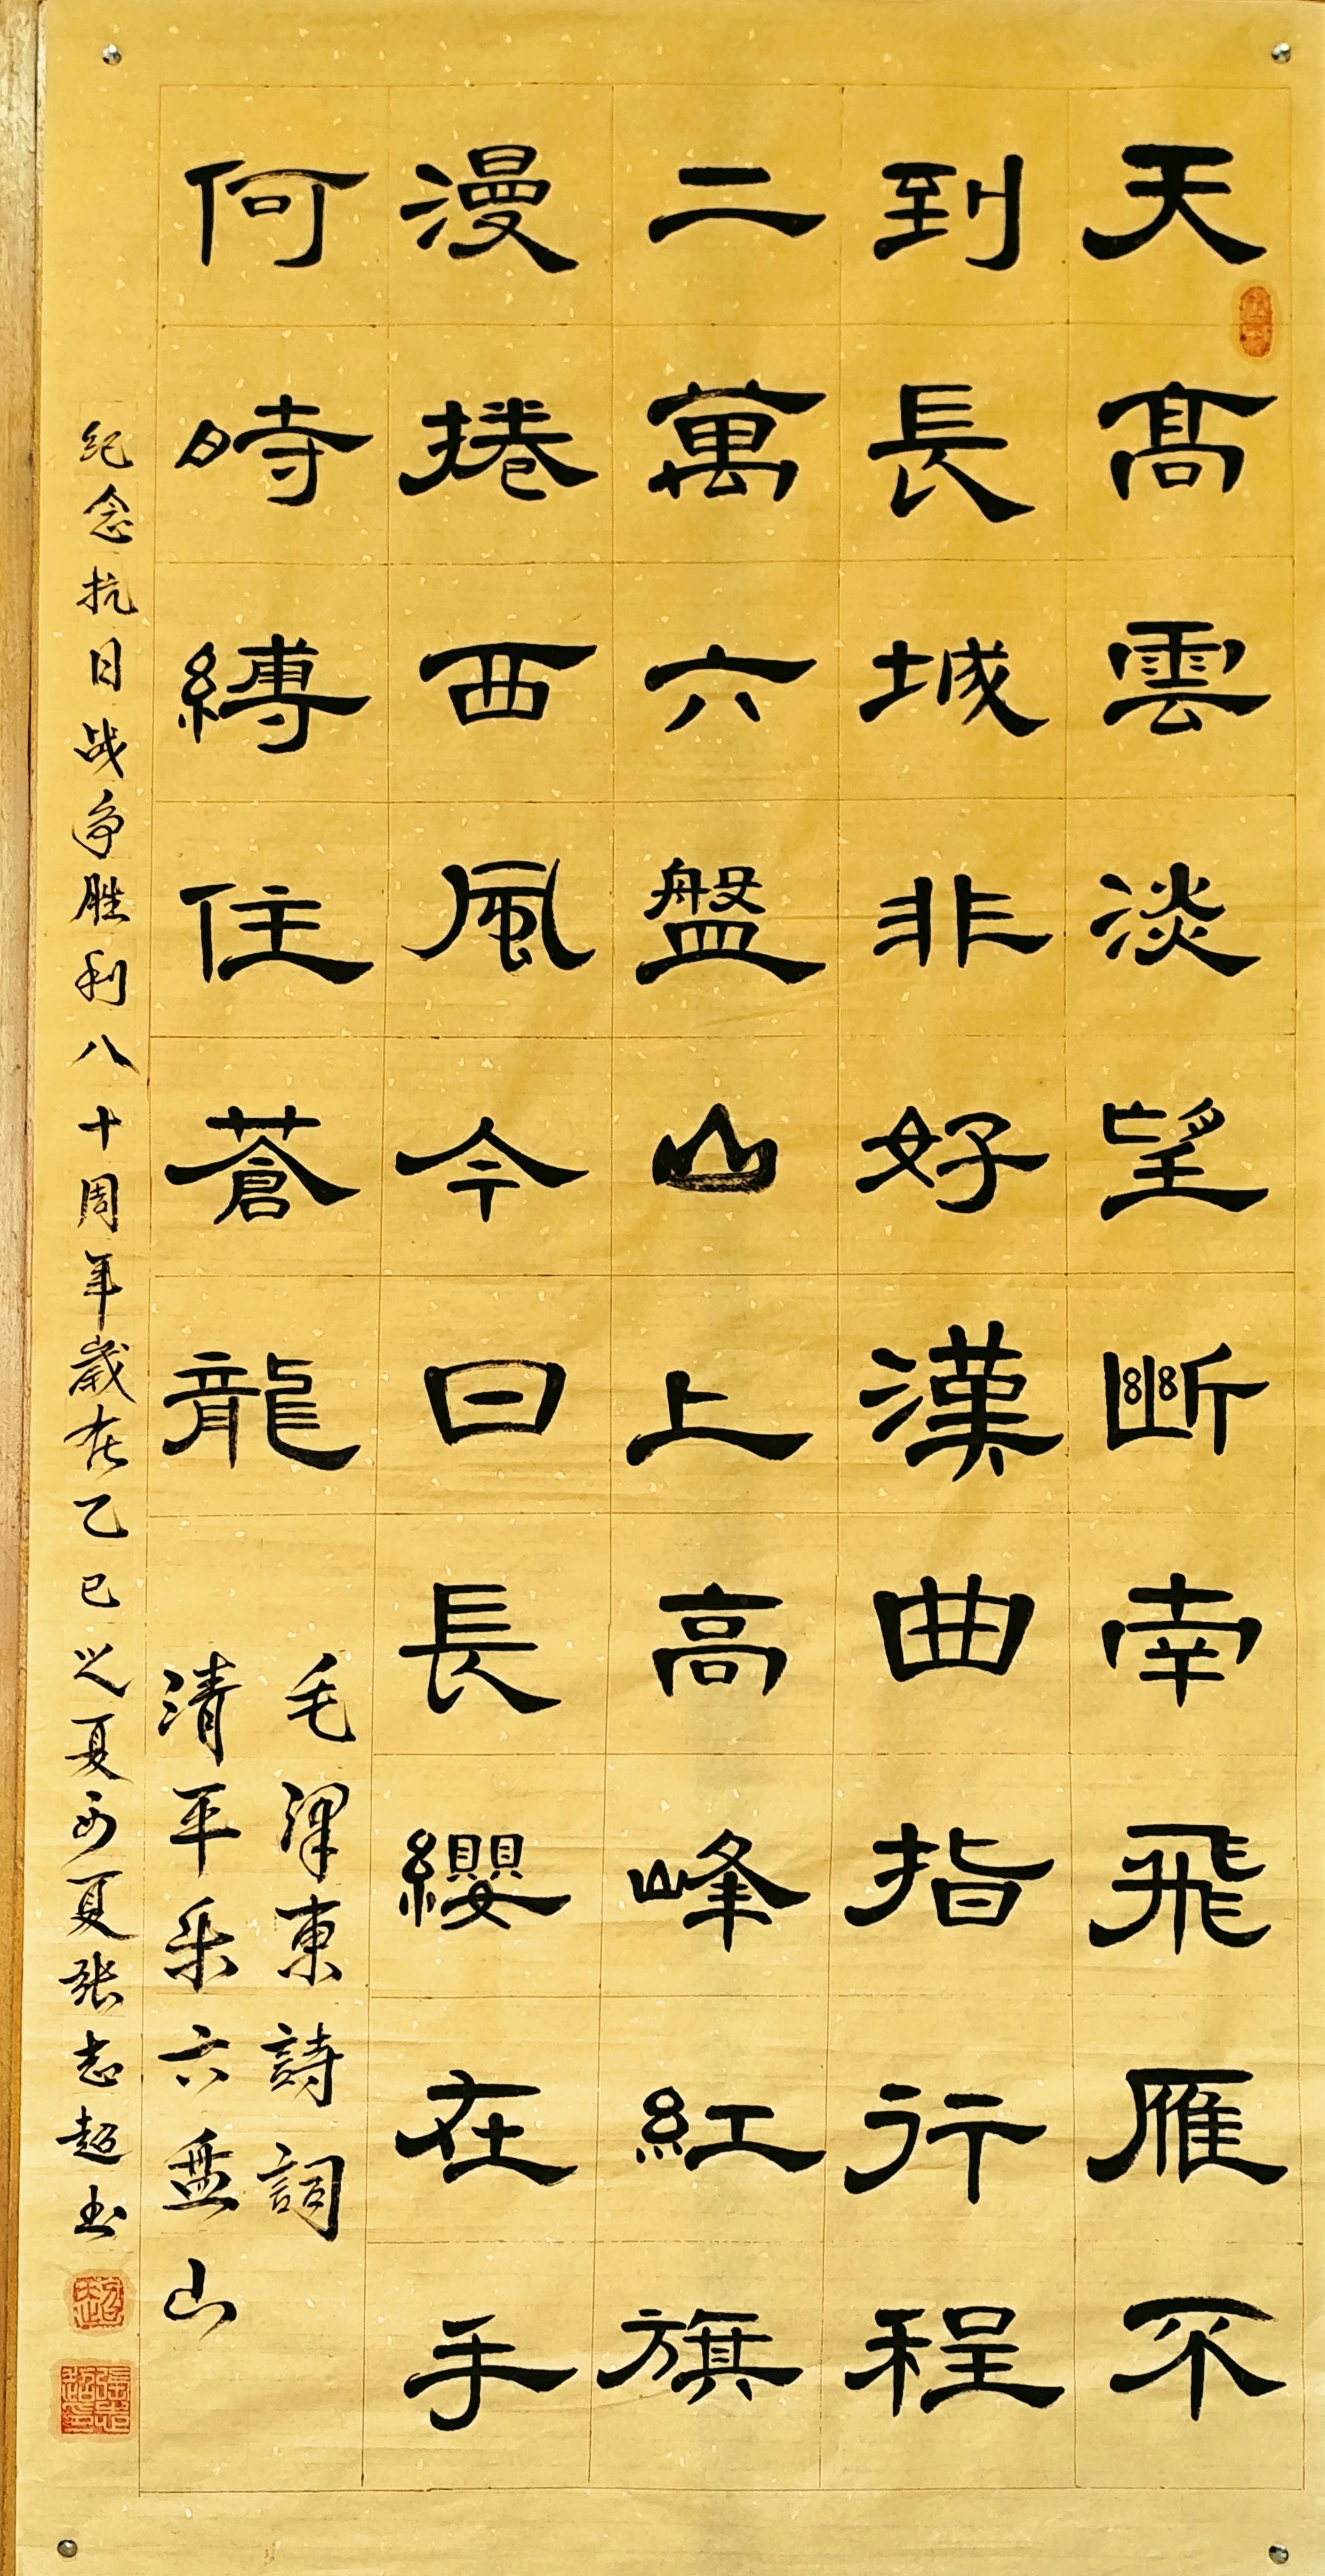 天髙雲淡望斷南飛雁不
到長城非好漢曲指行程
二萬六盤山上高峰紅旗
漫捲西風今日長纓在手
何時縛住蒼龍
毛澤東詩詞
清平乐六盘山
纪念抗日战争胜利八十周年歲在乙巳之夏夏张志超书
張志超印